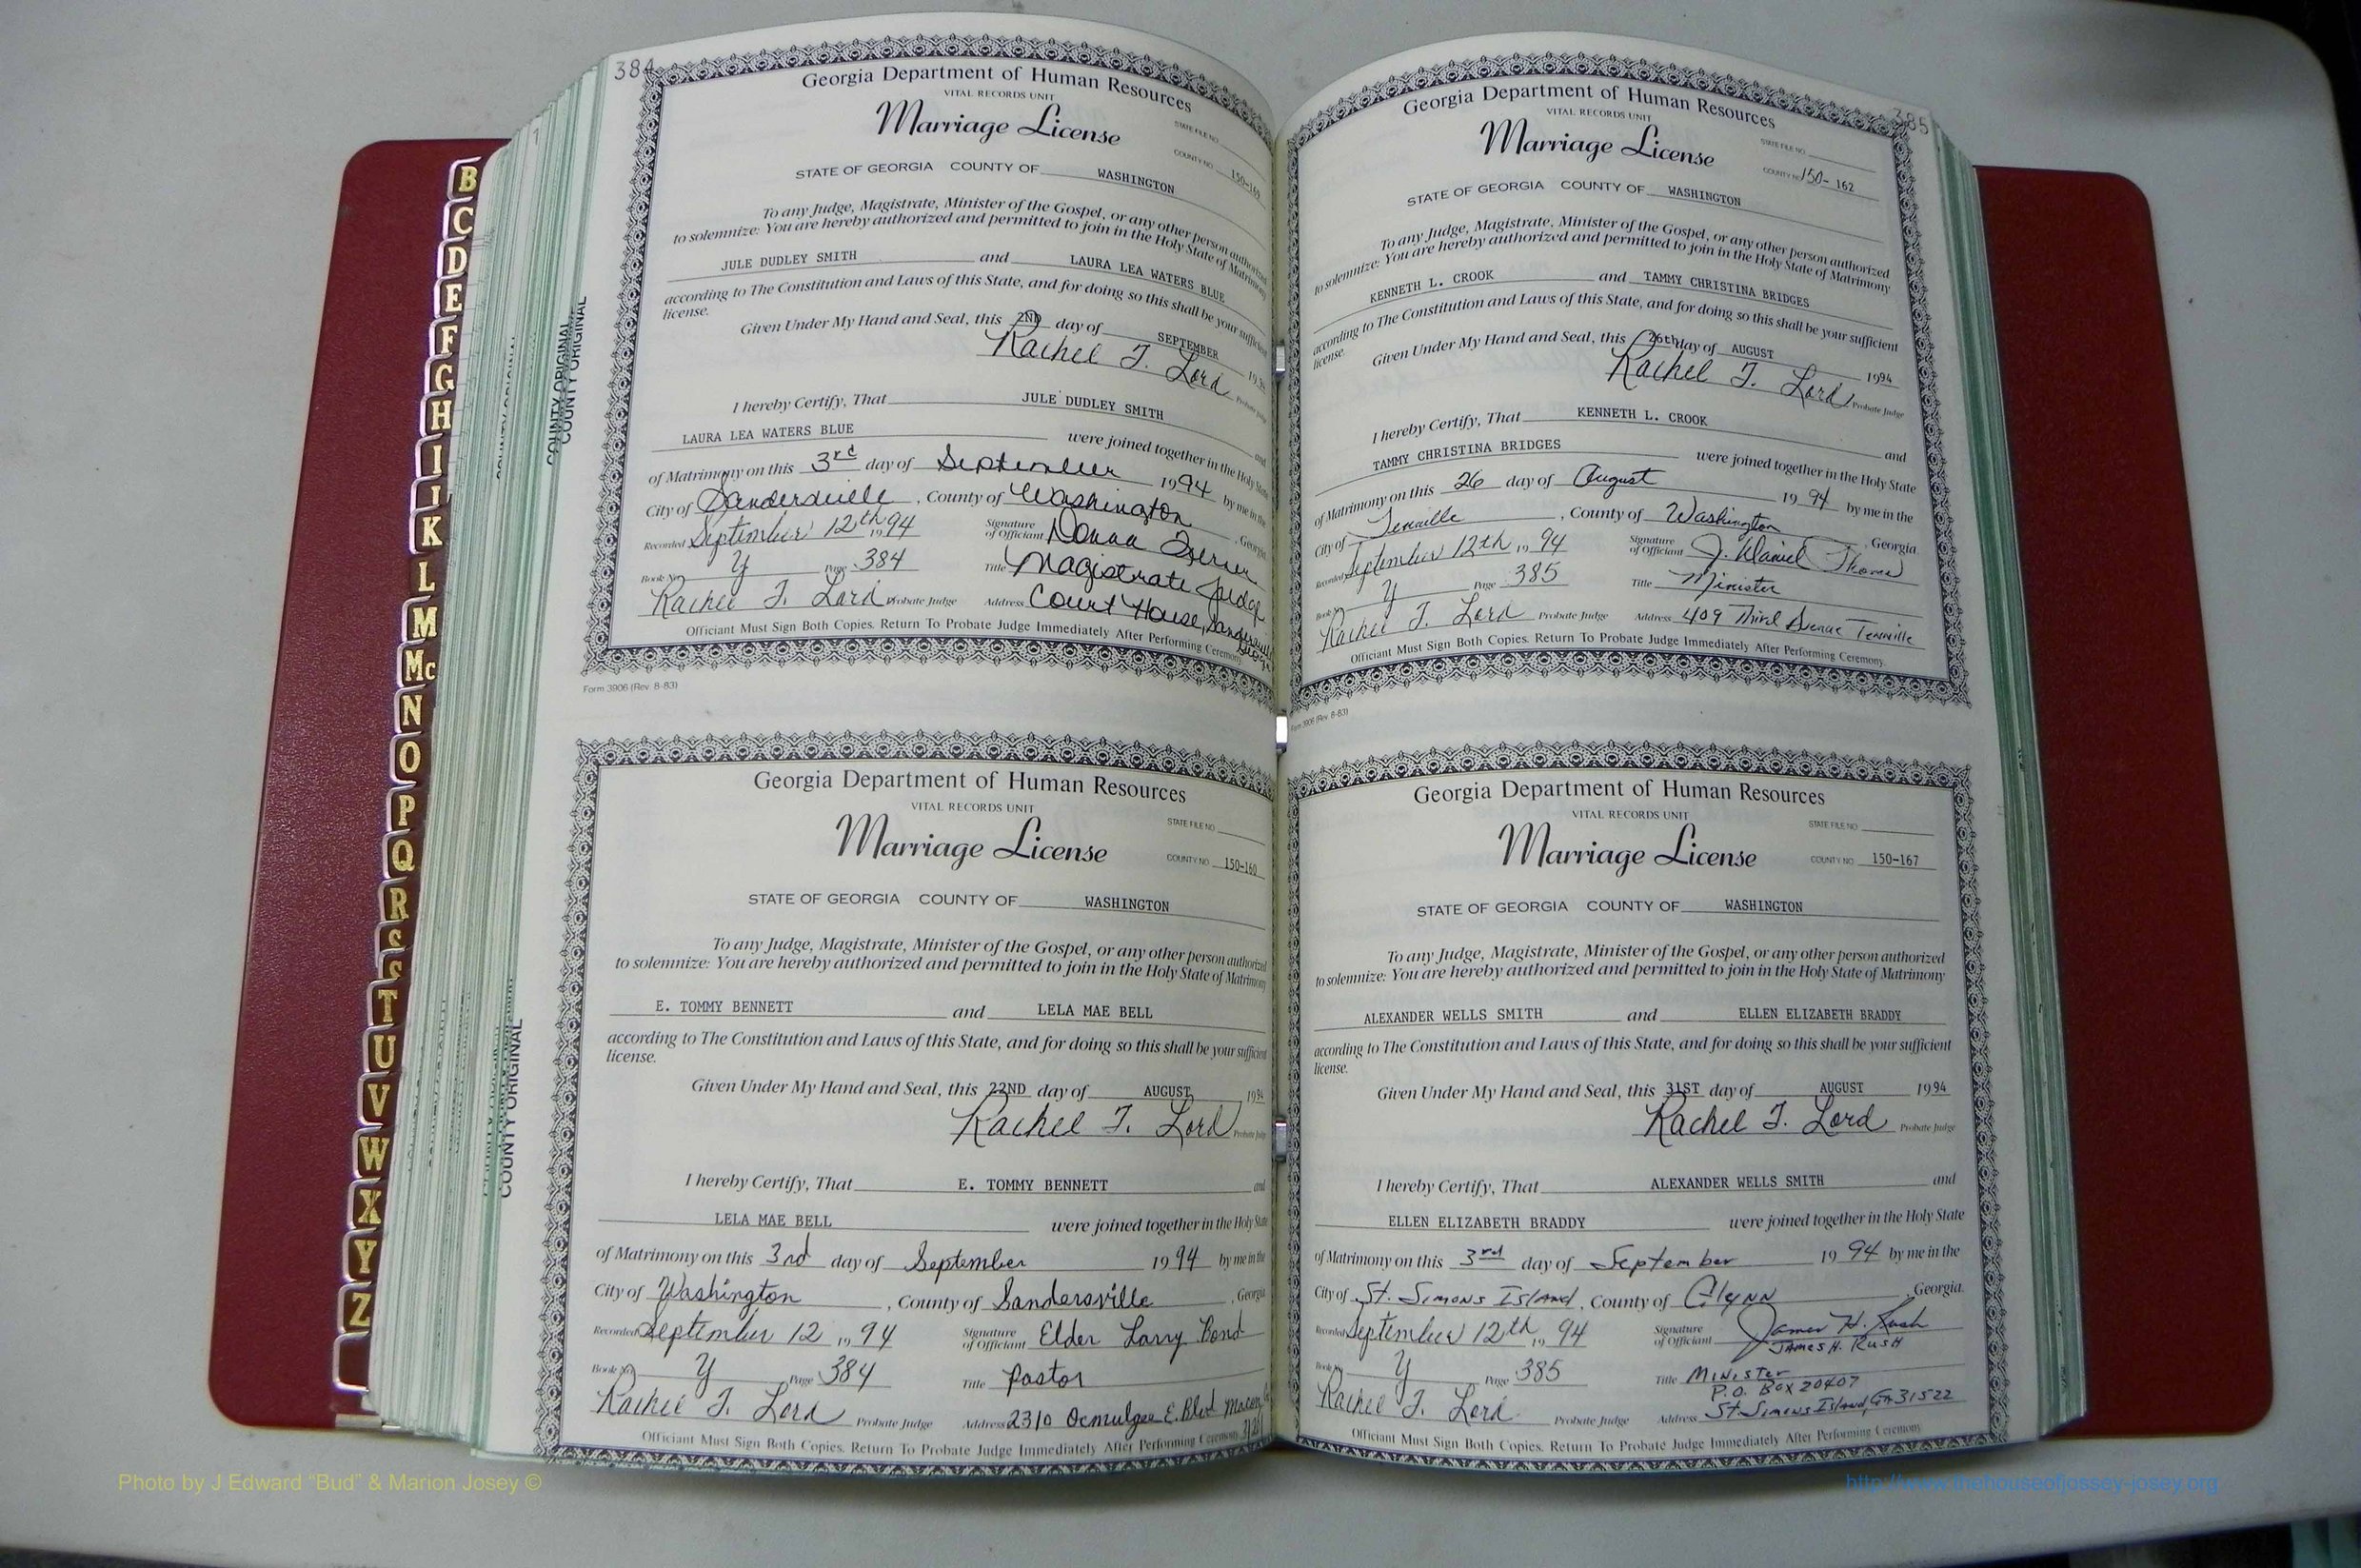 384
Georgia Department of Human Resources
VITAL RECORDS UNIT
Marriage License
STATE FILE NO.
COUNTY NO.
STATE OF GEORGIA COUNTY OF WASHINGTON
To any Judge, Magistrate, Minister of the Gospel, or any other person authorized
to solemnize: You are hereby authorized and permitted to join in the Holy State of Matrimony
JULE DUDLEY SMITH and LAURA LEA WATERS BLUE
according to The Constitution and Laws of this State, and for doing so this shall be your sufficient
license.
Given Under My Hand and Seal, this 2ND day of SEPTEMBER
Rachel T. Lord Probate Judge
I hereby Certify, That JULE DUDLEY SMITH and
LAURA LEA WATERS BLUE were joined together in the Holy State
of Matrimony on this 3rd day of September 1994 by me in the
City of Sandersville, County of Washington, Georgia
Recorded September 12th 1994 Signature of Officiant Donna
Book No. Y Page 384 Title Magistrate Judge
Rachel T. Lord Probate Judge Address Court House, Sandersville
Officiant Must Sign Both Copies. Return To Probate Judge Immediately After Performing Ceremony.
Form 3906 (Rev. 8-83)
Georgia Department of Human Resources
VITAL RECORDS UNIT
Marriage License
STATE FILE NO.
COUNTY NO. 150-160
STATE OF GEORGIA COUNTY OF WASHINGTON
To any Judge, Magistrate, Minister of the Gospel, or any other person authorized
to solemnize: You are hereby authorized and permitted to join in the Holy State of Matrimony
E. TOMMY BENNETT and LELA MAE BELL
according to The Constitution and Laws of this State, and for doing so this shall be your sufficient
license.
Given Under My Hand and Seal, this 22ND day of AUGUST, 1994
Rachel T. Lord Probate Judge
I hereby Certify, That E. TOMMY BENNETT and
LELA MAE BELL were joined together in the Holy State
of Matrimony on this 3rd day of September 1994 by me in the
City of Washington, County of Sandersville, Georgia
Recorded September 12 1994 Signature of Officiant Elder Larry Bond
Book No. Y Page 384 Title Pastor
Rachel T. Lord Probate Judge Address 2310 Ocmulgee E. Blvd Macon,
Officiant Must Sign Both Copies. Return To Probate Judge Immediately After Performing Ceremony
385
Georgia Department of Human Resources
VITAL RECORDS UNIT
Marriage License
STATE FILE NO.
COUNTY NO. 150- 162
STATE OF GEORGIA COUNTY OF WASHINGTON
To any Judge, Magistrate, Minister of the Gospel, or any other person authorized
to solemnize: You are hereby authorized and permitted to join in the Holy State of Matrimony
KENNETH L. CROOK and TAMMY CHRISTINA BRIDGES
according to The Constitution and Laws of this State, and for doing so this shall be your sufficient
license.
Given Under My Hand and Seal, this 26th day of AUGUST 1994
Rachel T. Lord Probate Judge
I hereby Certify, That KENNETH L. CROOK and
TAMMY CHRISTINA BRIDGES were joined together in the Holy State
of Matrimony on this 26 day of August 1994 by me in the
City of Tennille, County of Washington, Georgia
Recorded September 12th 1994 Signature of Officiant J. Daniel Thomas
Book No. Y Page 385 Title Minister
Rachel T. Lord Probate Judge Address 409 Third Avenue Tennille
Officiant Must Sign Both Copies. Return To Probate Judge Immediately After Performing Ceremony.
Form 3906 (Rev. 8-83)
Georgia Department of Human Resources
VITAL RECORDS UNIT
Marriage License
STATE FILE NO.
COUNTY NO. 150-167
STATE OF GEORGIA COUNTY OF WASHINGTON
To any Judge, Magistrate, Minister of the Gospel, or any other person authorized
to solemnize: You are hereby authorized and permitted to join in the Holy State of Matrimony
ALEXANDER WELLS SMITH and ELLEN ELIZABETH BRADDY
according to The Constitution and Laws of this State, and for doing so this shall be your sufficient
license.
Given Under My Hand and Seal, this 31ST day of AUGUST 1994
Rachel T. Lord Probate Judge
I hereby Certify, That ALEXANDER WELLS SMITH and
ELLEN ELIZABETH BRADDY were joined together in the Holy State
of Matrimony on this 3rd day of September 1994 by me in the
City of St. Simons Island, County of Glynn, Georgia.
Recorded September 12th 1994 Signature of Officiant James H. Rush
JAMES H. RUSH
Book No. Y Page 385 Title Minister
P.O. Box 20407
Rachel T. Lord Probate Judge Address St. Simons Island, GA 31522
Officiant Must Sign Both Copies. Return To Probate Judge Immediately After Performing Ceremony
B
C
D
E
F
G
H
I
J
K
L
M
Mc
N
O
P
Q
R
S
S
T
U
V
W
X
Y
Z
COUNTY ORIGINAL
COUNTY ORIGINAL
COUNTY ORIGINAL
Photo by J Edward “Bud” & Marion Josey ©
http://www.thehouseofjossey-josey.org